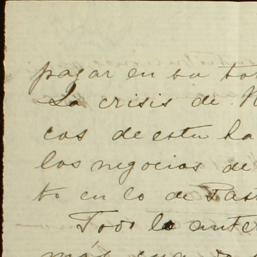 pagar en su to
La crisis de N
cas de esta ha
los negocios de
to en lo de Pas
Todo lo ante
más que